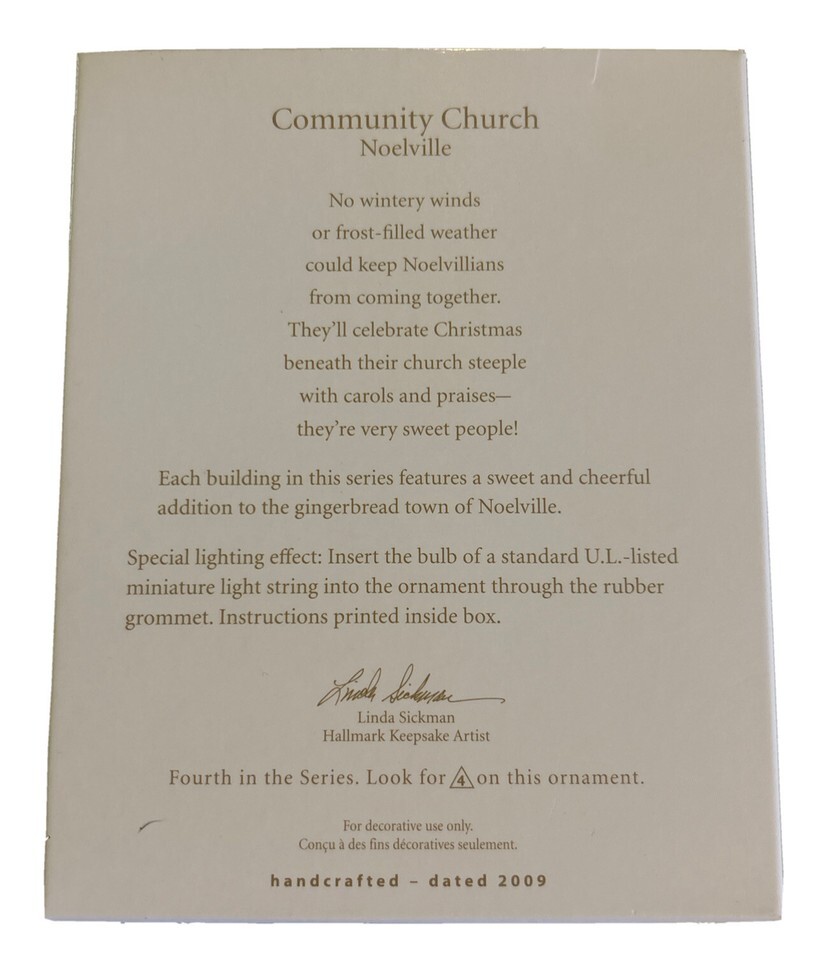 Community Church
Noelville
No wintery winds
or frost-filled weather
could keep Noelvillians
from coming together.
They’ll celebrate Christmas
beneath their church steeple
with carols and praises—
they’re very sweet people!
Each building in this series features a sweet and cheerful
addition to the gingerbread town of Noelville.
Special lighting effect: Insert the bulb of a standard U.L.-listed
miniature light string into the ornament through the rubber
grommet. Instructions printed inside box.
Linda Sickman
Linda Sickman
Hallmark Keepsake Artist
Fourth in the Series. Look for 4 on this ornament.
For decorative use only.
Conçu à des fins décoratives seulement.
handcrafted – dated 2009